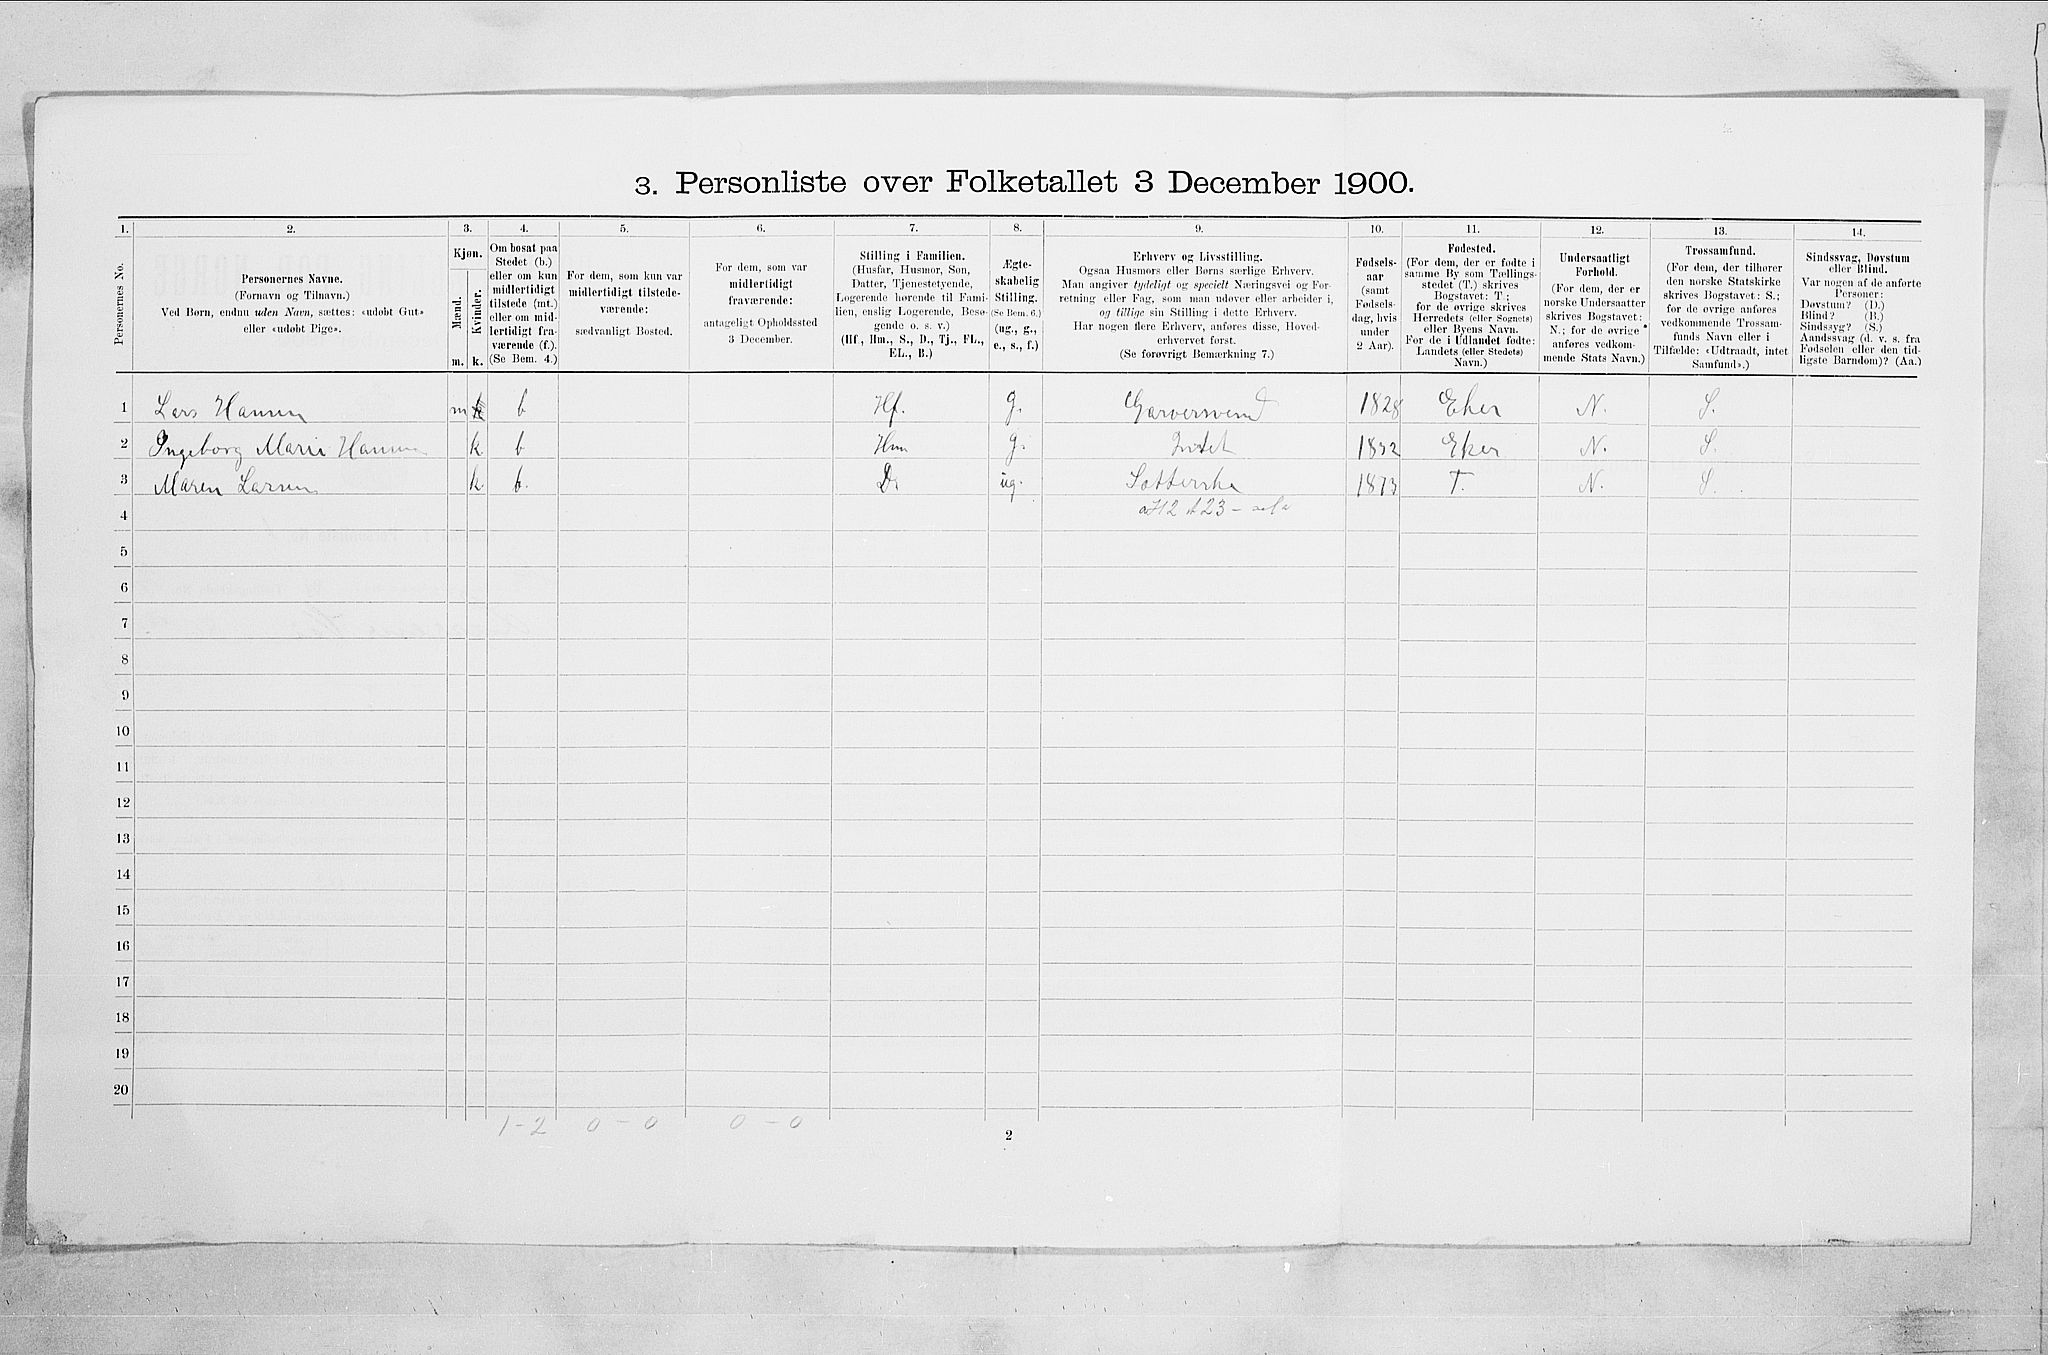 3. Personliste over Folketallet 3 December 1900.
1. 2. 3. 4. 5. 6. 7. 8. 9. 10. 11. 12. 13. 14.
Personernes No.
Personernes Navne.
(Fornavn og Tilnavn.)
Ved Børn, endnu uden Navn, sættes: «udøbt Gut»
eller «udøbt Pige».
Kjøn.
Mænd.
Kvinder.
m. k.
Om bosat paa
Stedet (b.)
eller om kun
midlertidigt
tilstede (mt.)
eller om mid-
lertidigt fra-
værende (f.).
(Se Bem. 4.)
For dem, som kun var
midlertidigt tilstede-
værende:
sædvanligt Bosted.
For dem, som var
midlertidigt
fraværende:
antageligt Opholdssted
3 December.
Stilling i Familien.
(Husfar, Husmor, Søn,
Datter, Tjenestetyende,
Logerende hørende til Fami-
lien, enslig Logerende, Besø-
gende o. s. v.)
(Hf., Hm., S., D., Tj., FL.,
EL., B.)
Ægte-
skabelig
Stilling.
(Se Bem. 6.)
(ug., g.,
e., s., f.)
Erhverv og Livsstilling.
Ogsaa Husmors eller Børns særlige Erhverv.
Man angiver tydeligt og specielt Næringsvei og For-
retning eller Fag, som man udøver eller arbeider i,
og tillige sin Stilling i dette Erhverv.
Har nogen flere Erhverv, anføres disse, Hoved-
erhvervet først.
(Se forøvrigt Bemærkning 7.)
Fødsels-
aar
(samt
Fødsels-
dag, hvis
under
2 Aar).
Fødested.
(For dem, der er fødte i
samme By som Tællings-
stedet (T.) skrives
Bogstavet: T.;
for de øvrige skrives
Herredets (eller Sognets)
eller Byens Navn.
For de i Udlandet fødte:
Landets (eller Stedets)
Navn.)
Undersaatligt
Forhold.
(For dem, der er
norske Undersaatter
skrives Bogstavet:
N.; for de øvrige
anføres vedkom-
mende Stats Navn.)
Trossamfund.
(For dem, der tilhører
den norske Statskirke
skrives Bogstavet: S.;
for de øvrige anføres
vedkommende Trossam-
funds Navn eller i
Tilfælde: «Udtraadt, intet
Samfund».)
Sindssvag, Døvstum
eller Blind.
Var nogen af de anførte
Personer:
Døvstum? (D.)
Blind? (B.)
Sindssyg? (S.)
Aandssvag (d. v. s. fra
Fødselen eller den tid-
ligste Barndom)? (Aa.)
1 Lars Hansen m b Hf. g. Garversvend 1828 Eker N. S.
2 Ingeborg Marie Hansen k b Hm g. Intet 1832 Eker N. S.
3 Maren Larsen k. b. D. ug. 1873 T. N. S.
4
5
6
7
8
9
10
11
12
13
14
15
16
17
18
19
20
1-2 0-0 0-0
2